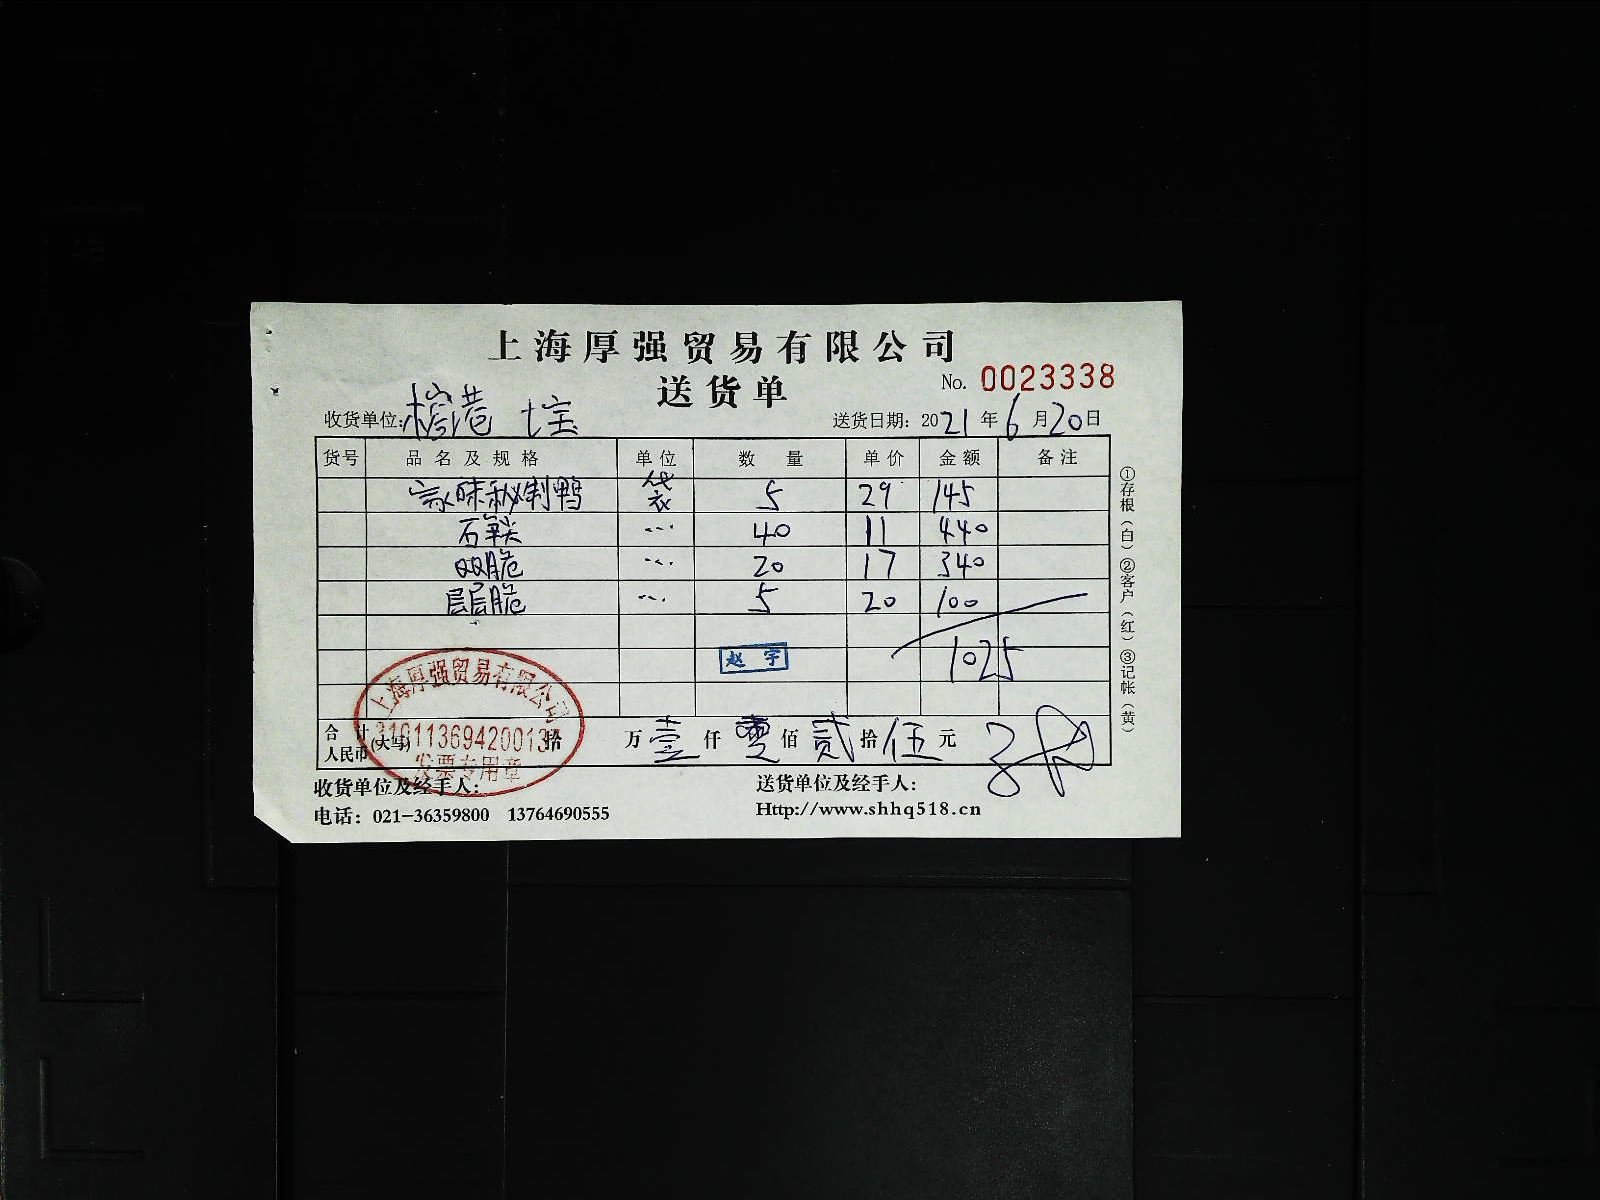 上海厚强贸易有限公司
送货单
No. 0023338
收货单位: 七宝
送货日期: 2021年6月20日
货号 品名及规格 单位 数量 单价 金额 备注
家味秘制鸭 袋 5 29 145
石 40 11 440
双脆 20 17 340
层层脆 5 20 100
赵宇 1025
合计人民币(大写) 拾 万 壹 仟 零 佰 贰 拾 伍 元
上海厚强贸易有限公司
发票专用章
收货单位及经手人:
送货单位及经手人:
电话: 021-36359800 13764690555
Http://www.shhq518.cn
①存根(白)②客户(红)③记帐(黄)